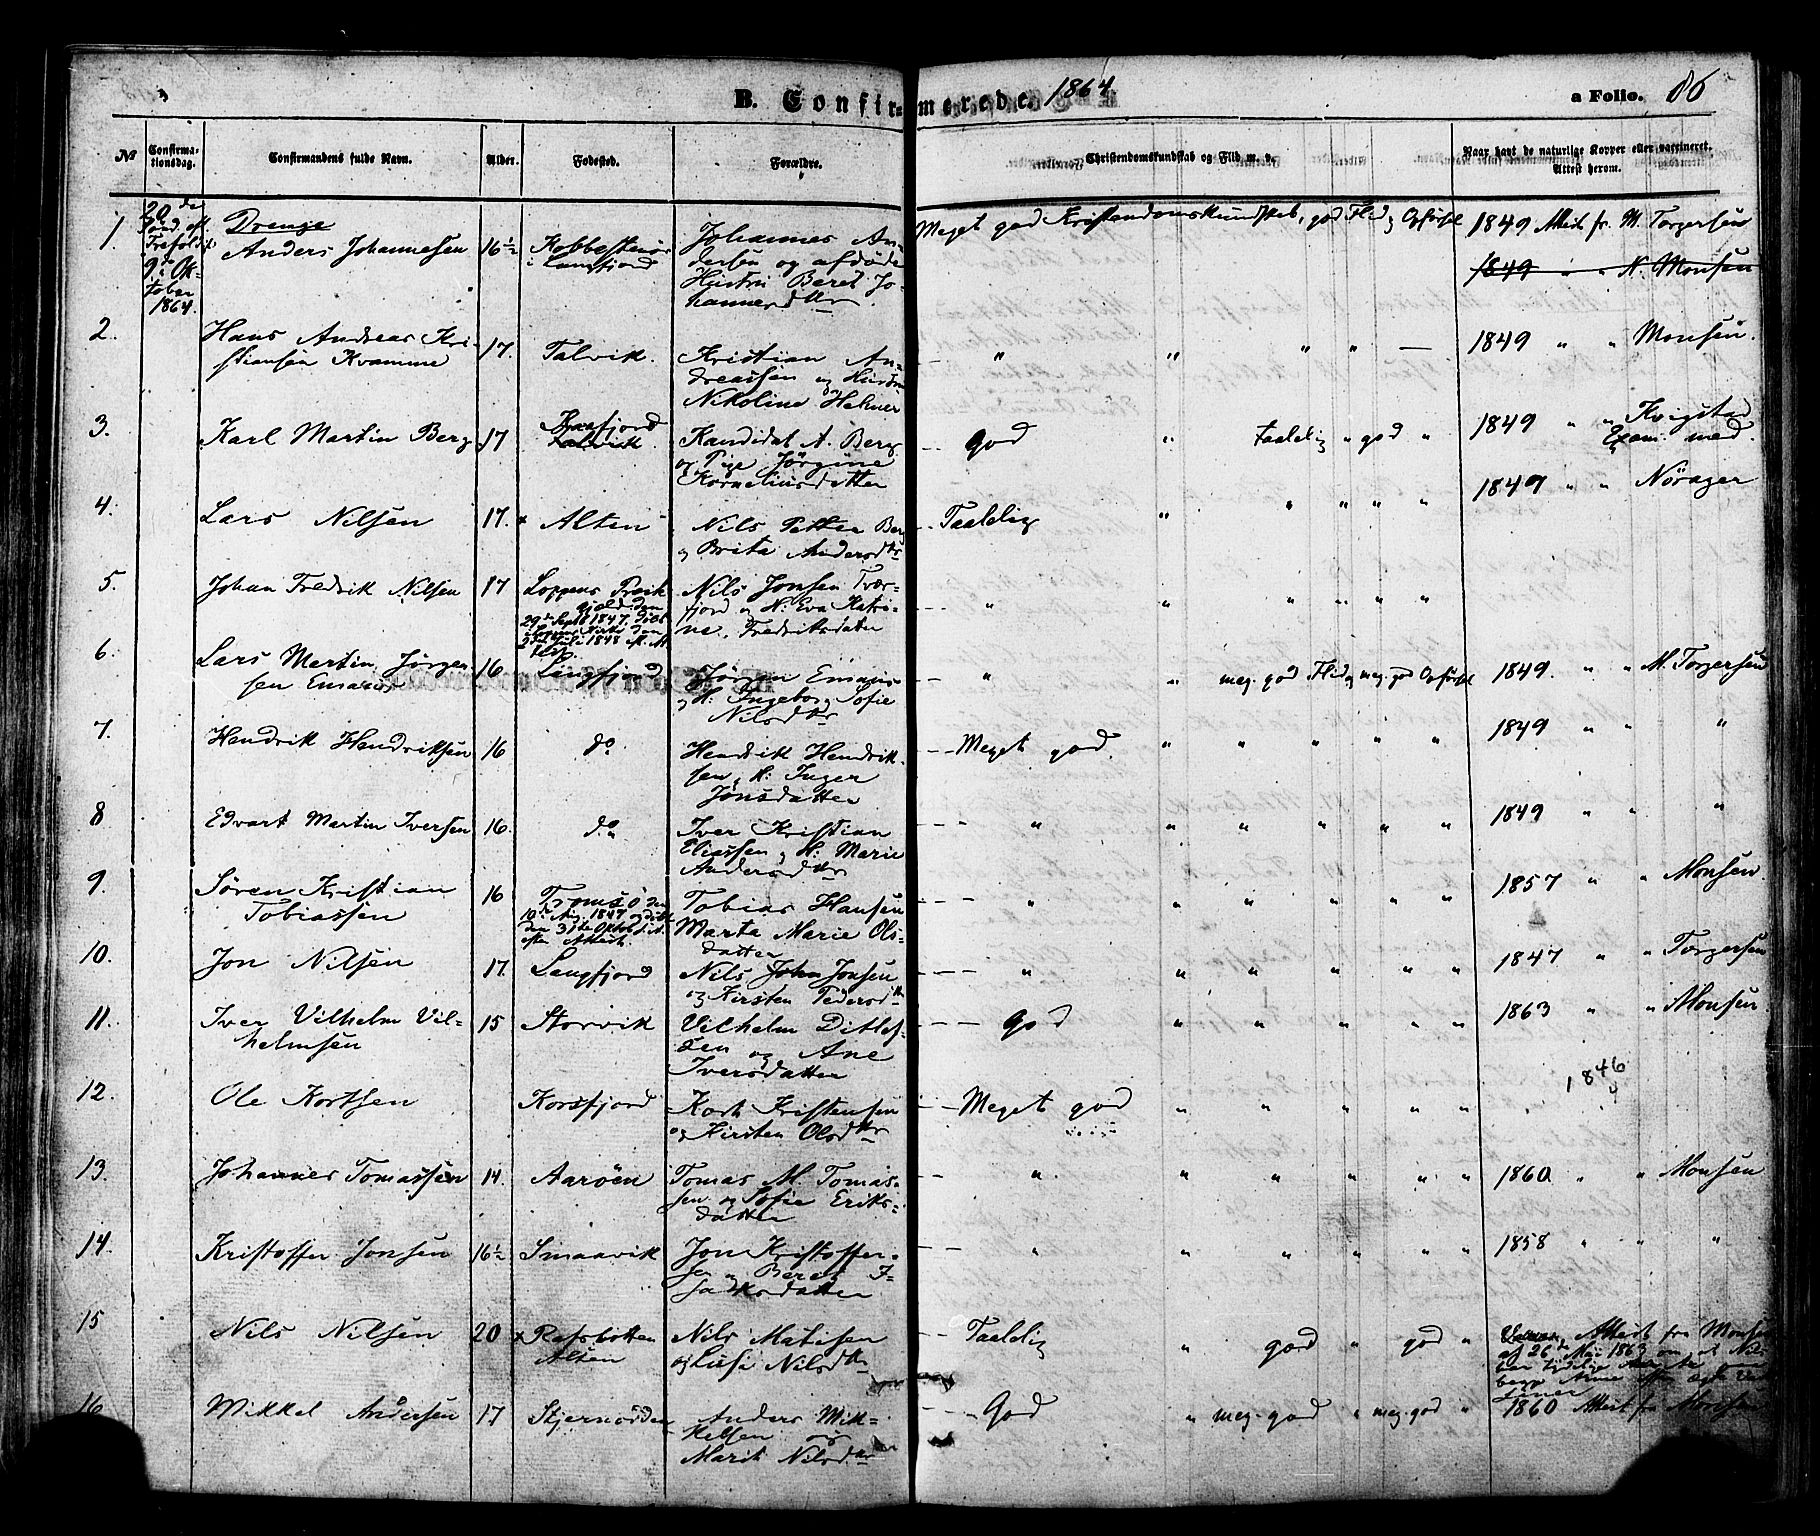 B. Confirmerede. 1864
a Folio. 86
№
Confirmationsdag.
Confirmandens fulde Navn.
Alder.
Fødested.
Forældre.
Christendomskundskab og Flid m. v.
Naar havt de naturlige Kopper eller vaccineret. Attest herom.
20de Sønd. eft. Trefoldigh. 9de Oktober 1864.
Drenge
1. Anders Johannesen 16½ Kobbestenør i Langfjord Johannes Andersen og afdøde Hustru Beret Johannesdtr Meget god Kristendomskundskab, god Flid og Opførsel 1849 Attest fr. M. Torgersen
1849 " " N. Monsen
2. Hans Andreas Kristiansen Kvamme 17. Talvik. Kristian Andreassen og Hustru Nikoline Helmer — " " " " — 1849 " " Monsen.
3. Karl Martin Berg 17 Talvik Kandidat A. Berg og Pige Jørgine Korneliusdatter — God " taalelig " god " 1849 " " Kvigstad Exam. med.
4. Lars Nilsen 17. Alten Nils Petter Berg og Brita Andersdtr — Taalelig " " " " " 1847 " " Nørager
5. Johan Fredrik Nilsen 17 Loppens Præstegjeld den 29de Septb 1847, døbt i Loppens Kirke den Juli 1848 Nils Jonsen Tværfjord og H. Eva Katrine Fredriksdatter — " " " " " "
6. Lars Martin Jørgensen Emaus 16 Langfjord Jørgen Emaus og H. Ingeborg Sofie Nilsdtr — " " meg. god Flid og meg. god Opførsel 1849. " " M. Torgersen
7. Hendrik Hendriksen 16 do Hendrik Hendriksen, H: Inger Jonsdatter — Meget god " " " " " 1849 " " "
8 Edvart Martin Iversen 16. do Iver Kristian Eliassen og H: Marie Andersdtr — " " " " " " 1849 " " "
9. Søren Kristian Tobiassen 16 Tromsø den 10de Aug. 1847 og døbt den 31te Oktob d. A. efter Attest. Tobias Hansen Marta Marie Olsdatter — " " " " " " 1857 " " Monsen
10. Jon Nilsen 17. Langfjord Nils John Jonsen og Kirsten Pedersdtr — " " " " " " 1847 " " Torgersen
11. Iver Vilhelm Vilhelmsen 15 Storvik Vilhelm Ditlefsen og Ane Iversdatter — God " " " " " 1863 " " Monsen
12. Ole Kortsen Korsfjord Kort Kristensen og Kirsten Olsdtr — Meget god " " " " " 1846
13. Johannes Tomassen 14. Aarøen Tomas M. Tomassen og Sofie Eriksdatter — " " " " " " 1860 " " Monsen
14. Kristoffer Jonsen 16½ Smaavik Jon Kristoffersen og Beret Isaksdatter — " " " " " " 1858 " " "
15 Nils Nilsen 20 Refsbotten Alten Nils Matisen og Lusi Nilsdtr — Taalelig " god " god " Attest fra Monsen af 26de Mai 1863 om at Nils
16 Mikkel Andersen 17 Stjernødden Anders Mikkelsen og Marit Nilsdtr — God " meg. god " meg. god " 1860 Attest fra Monsen